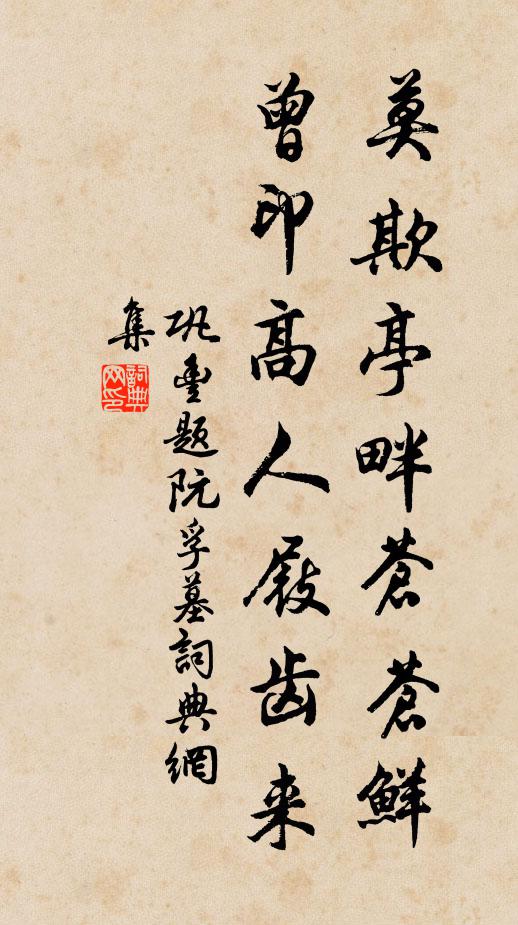 莫欺亭畔苍苍鲜
曾印高人屐齿来
巩丰题阮孚墓詞典網
集
詞典網印